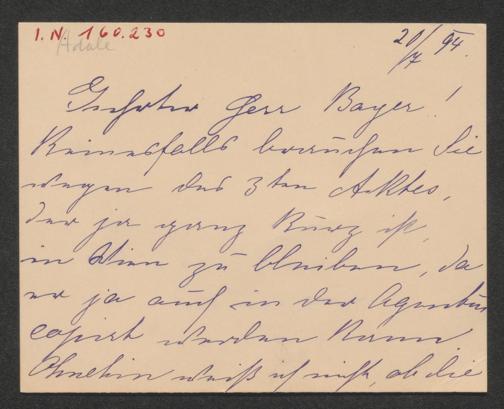 I.N. 160.230
Adele
20/7 94.
Geehrter Herr Bayer!
Keinesfalls brauchen Sie
wegen des 3ten Aktes,
der ja ganz kurz ist,
in Wien zu bleiben, da
er ja auch in der Agentur
copirt werden kann.
Ohnehin weiß ich nicht, ob die